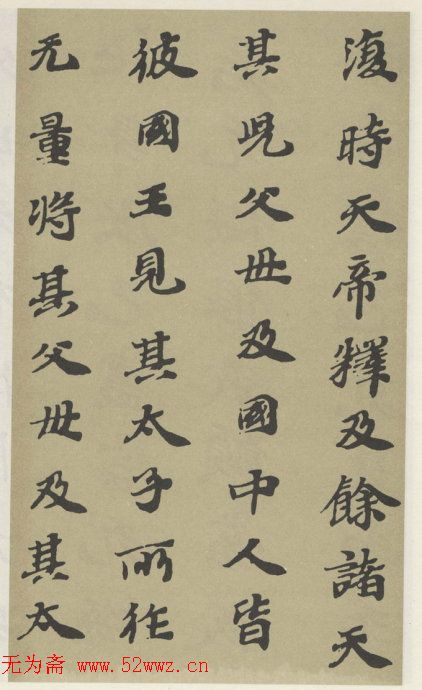 復時天帝釋及餘諸天
其兒父母及國中人皆
彼國王見其太子所往
无量將其父母及其太
无为斋 www.52wwz.cn